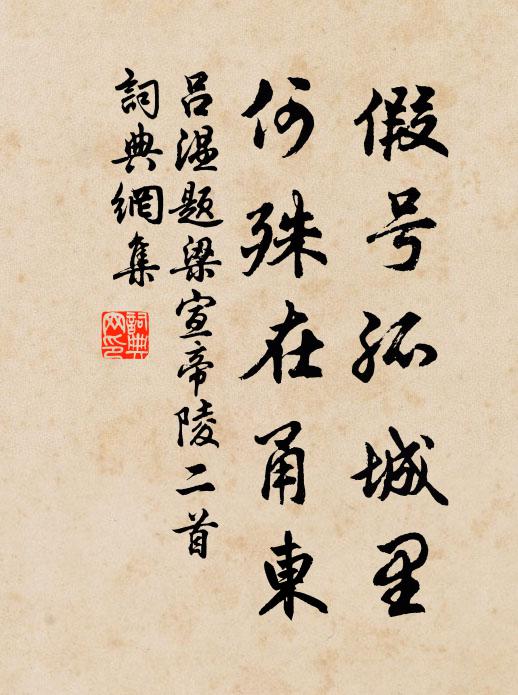 假号孤城里
何殊在甬東
吕温题梁宣帝陵二首
詞典網集
詞典網印